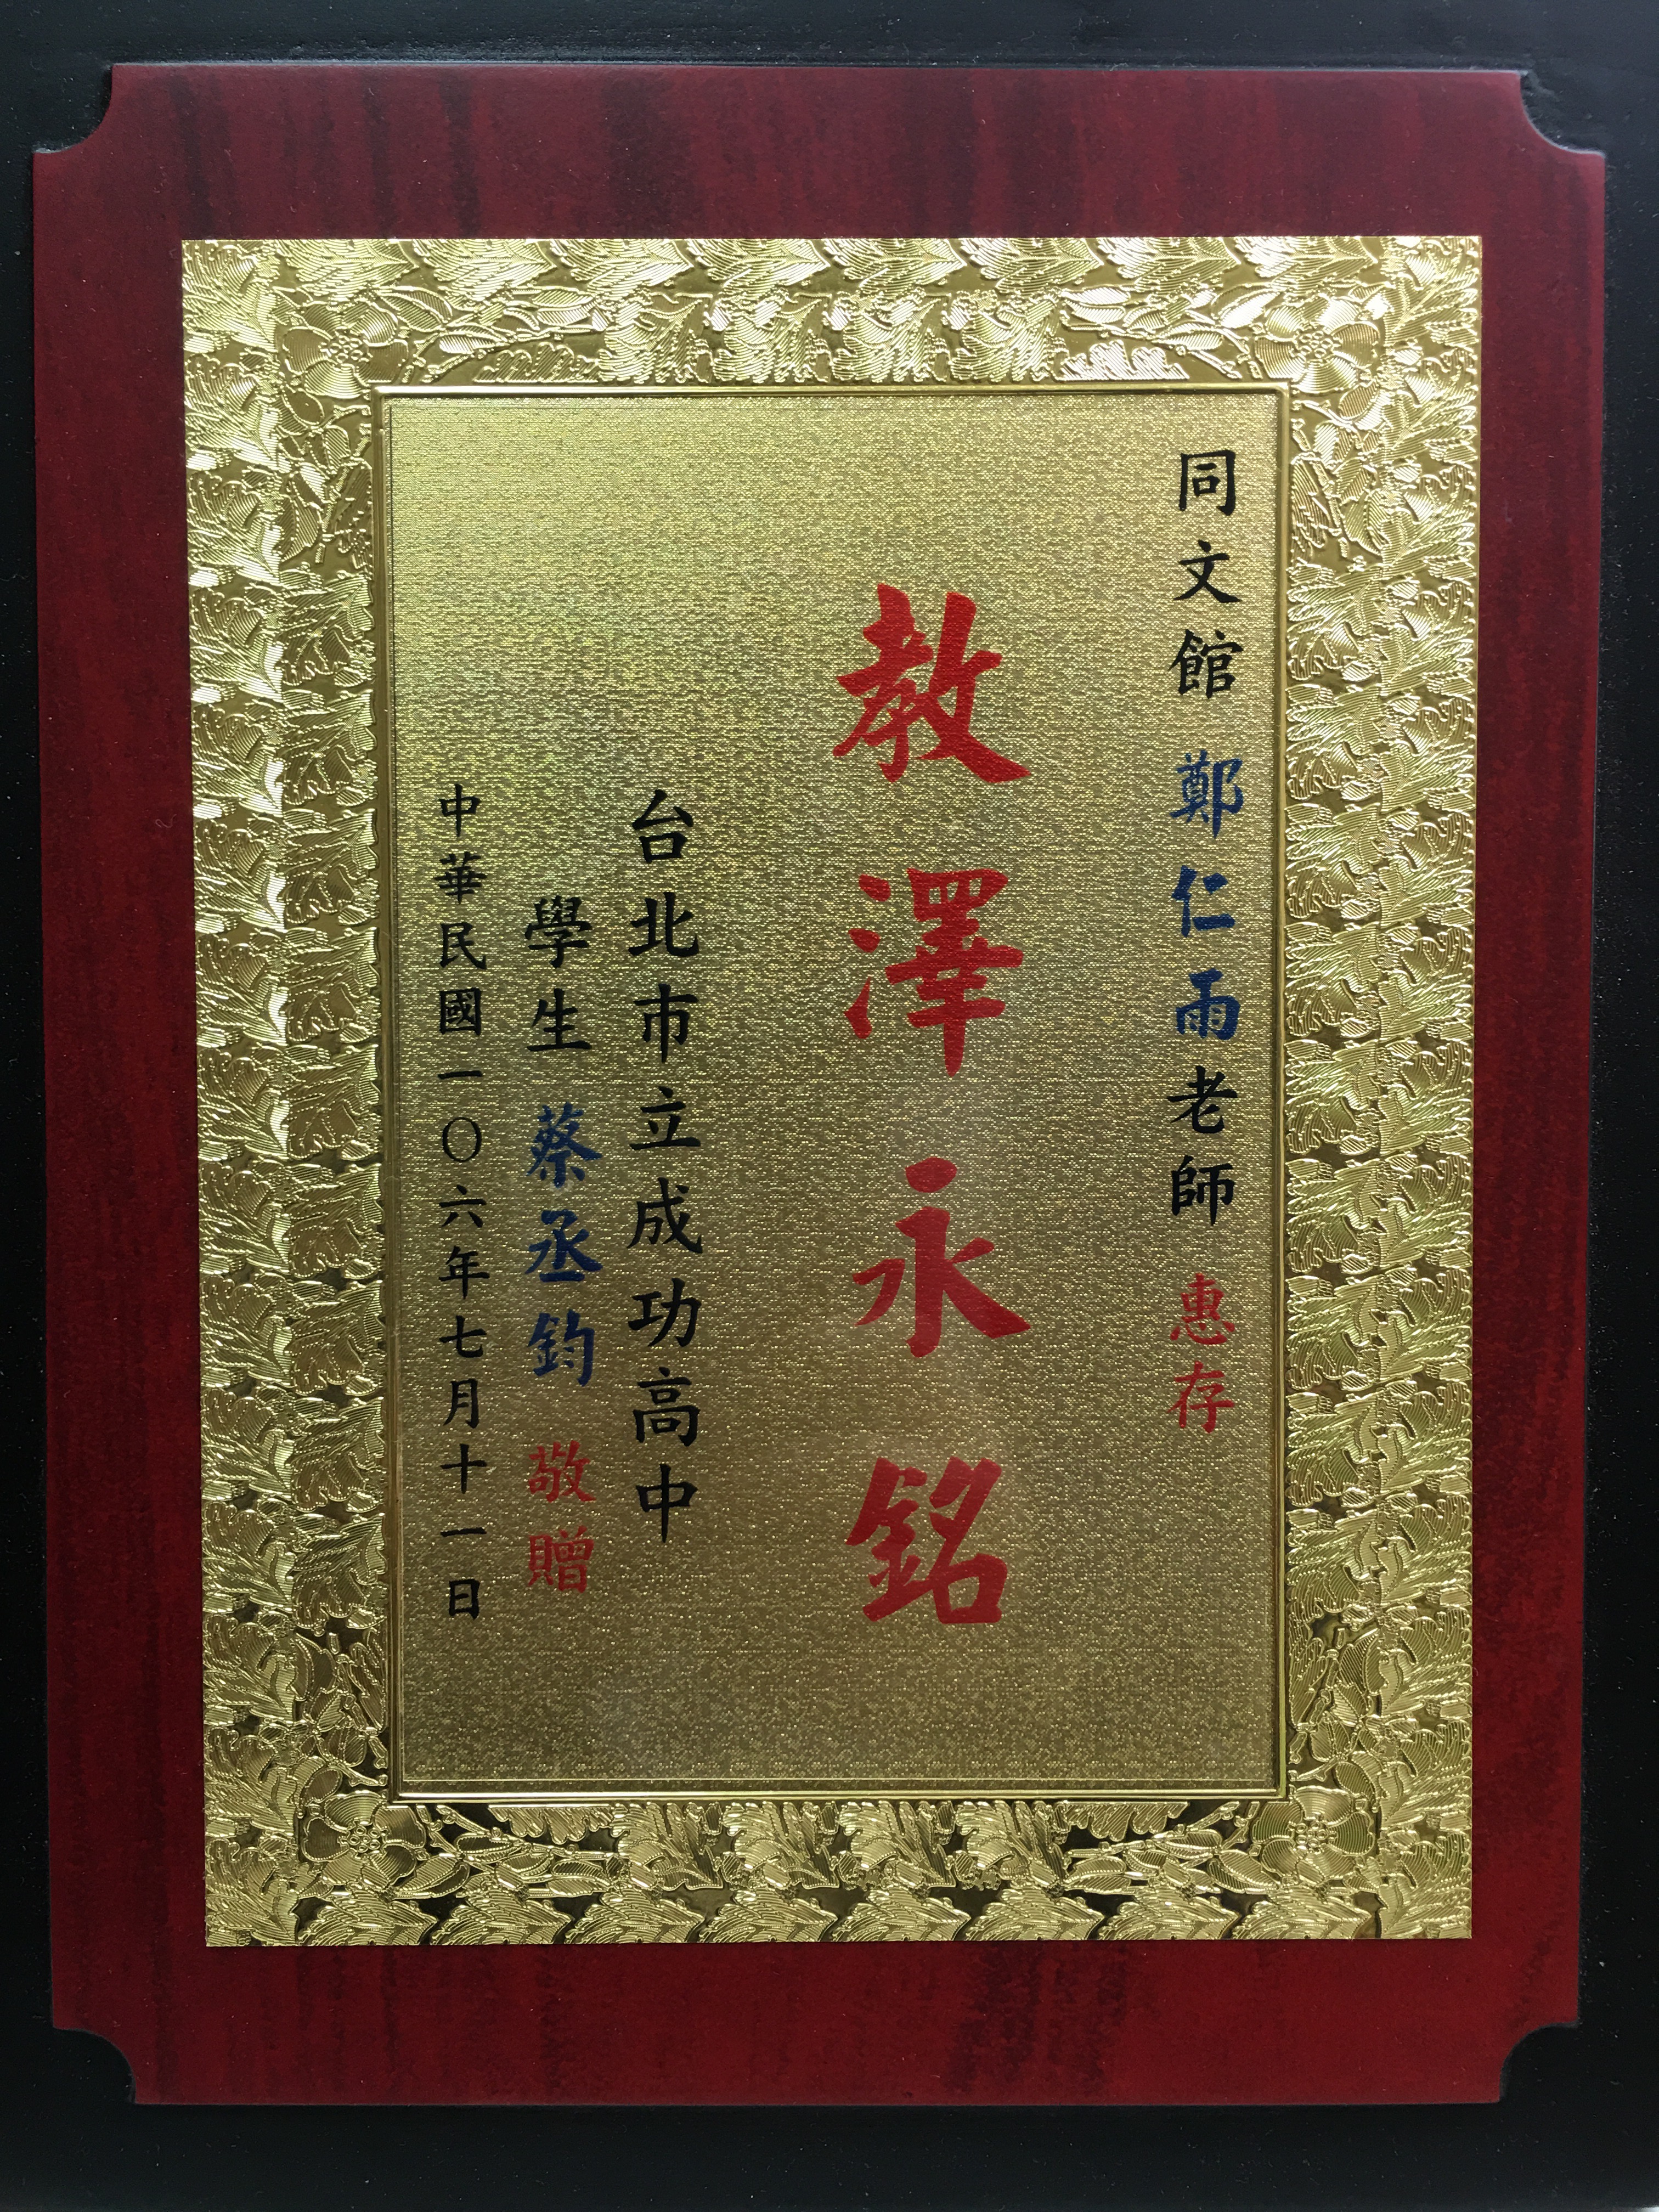 同文館 鄭仁雨老師 惠存
教澤永銘
台北市立成功高中
學生 蔡丞鈞 敬贈
中華民國一〇六年七月十一日